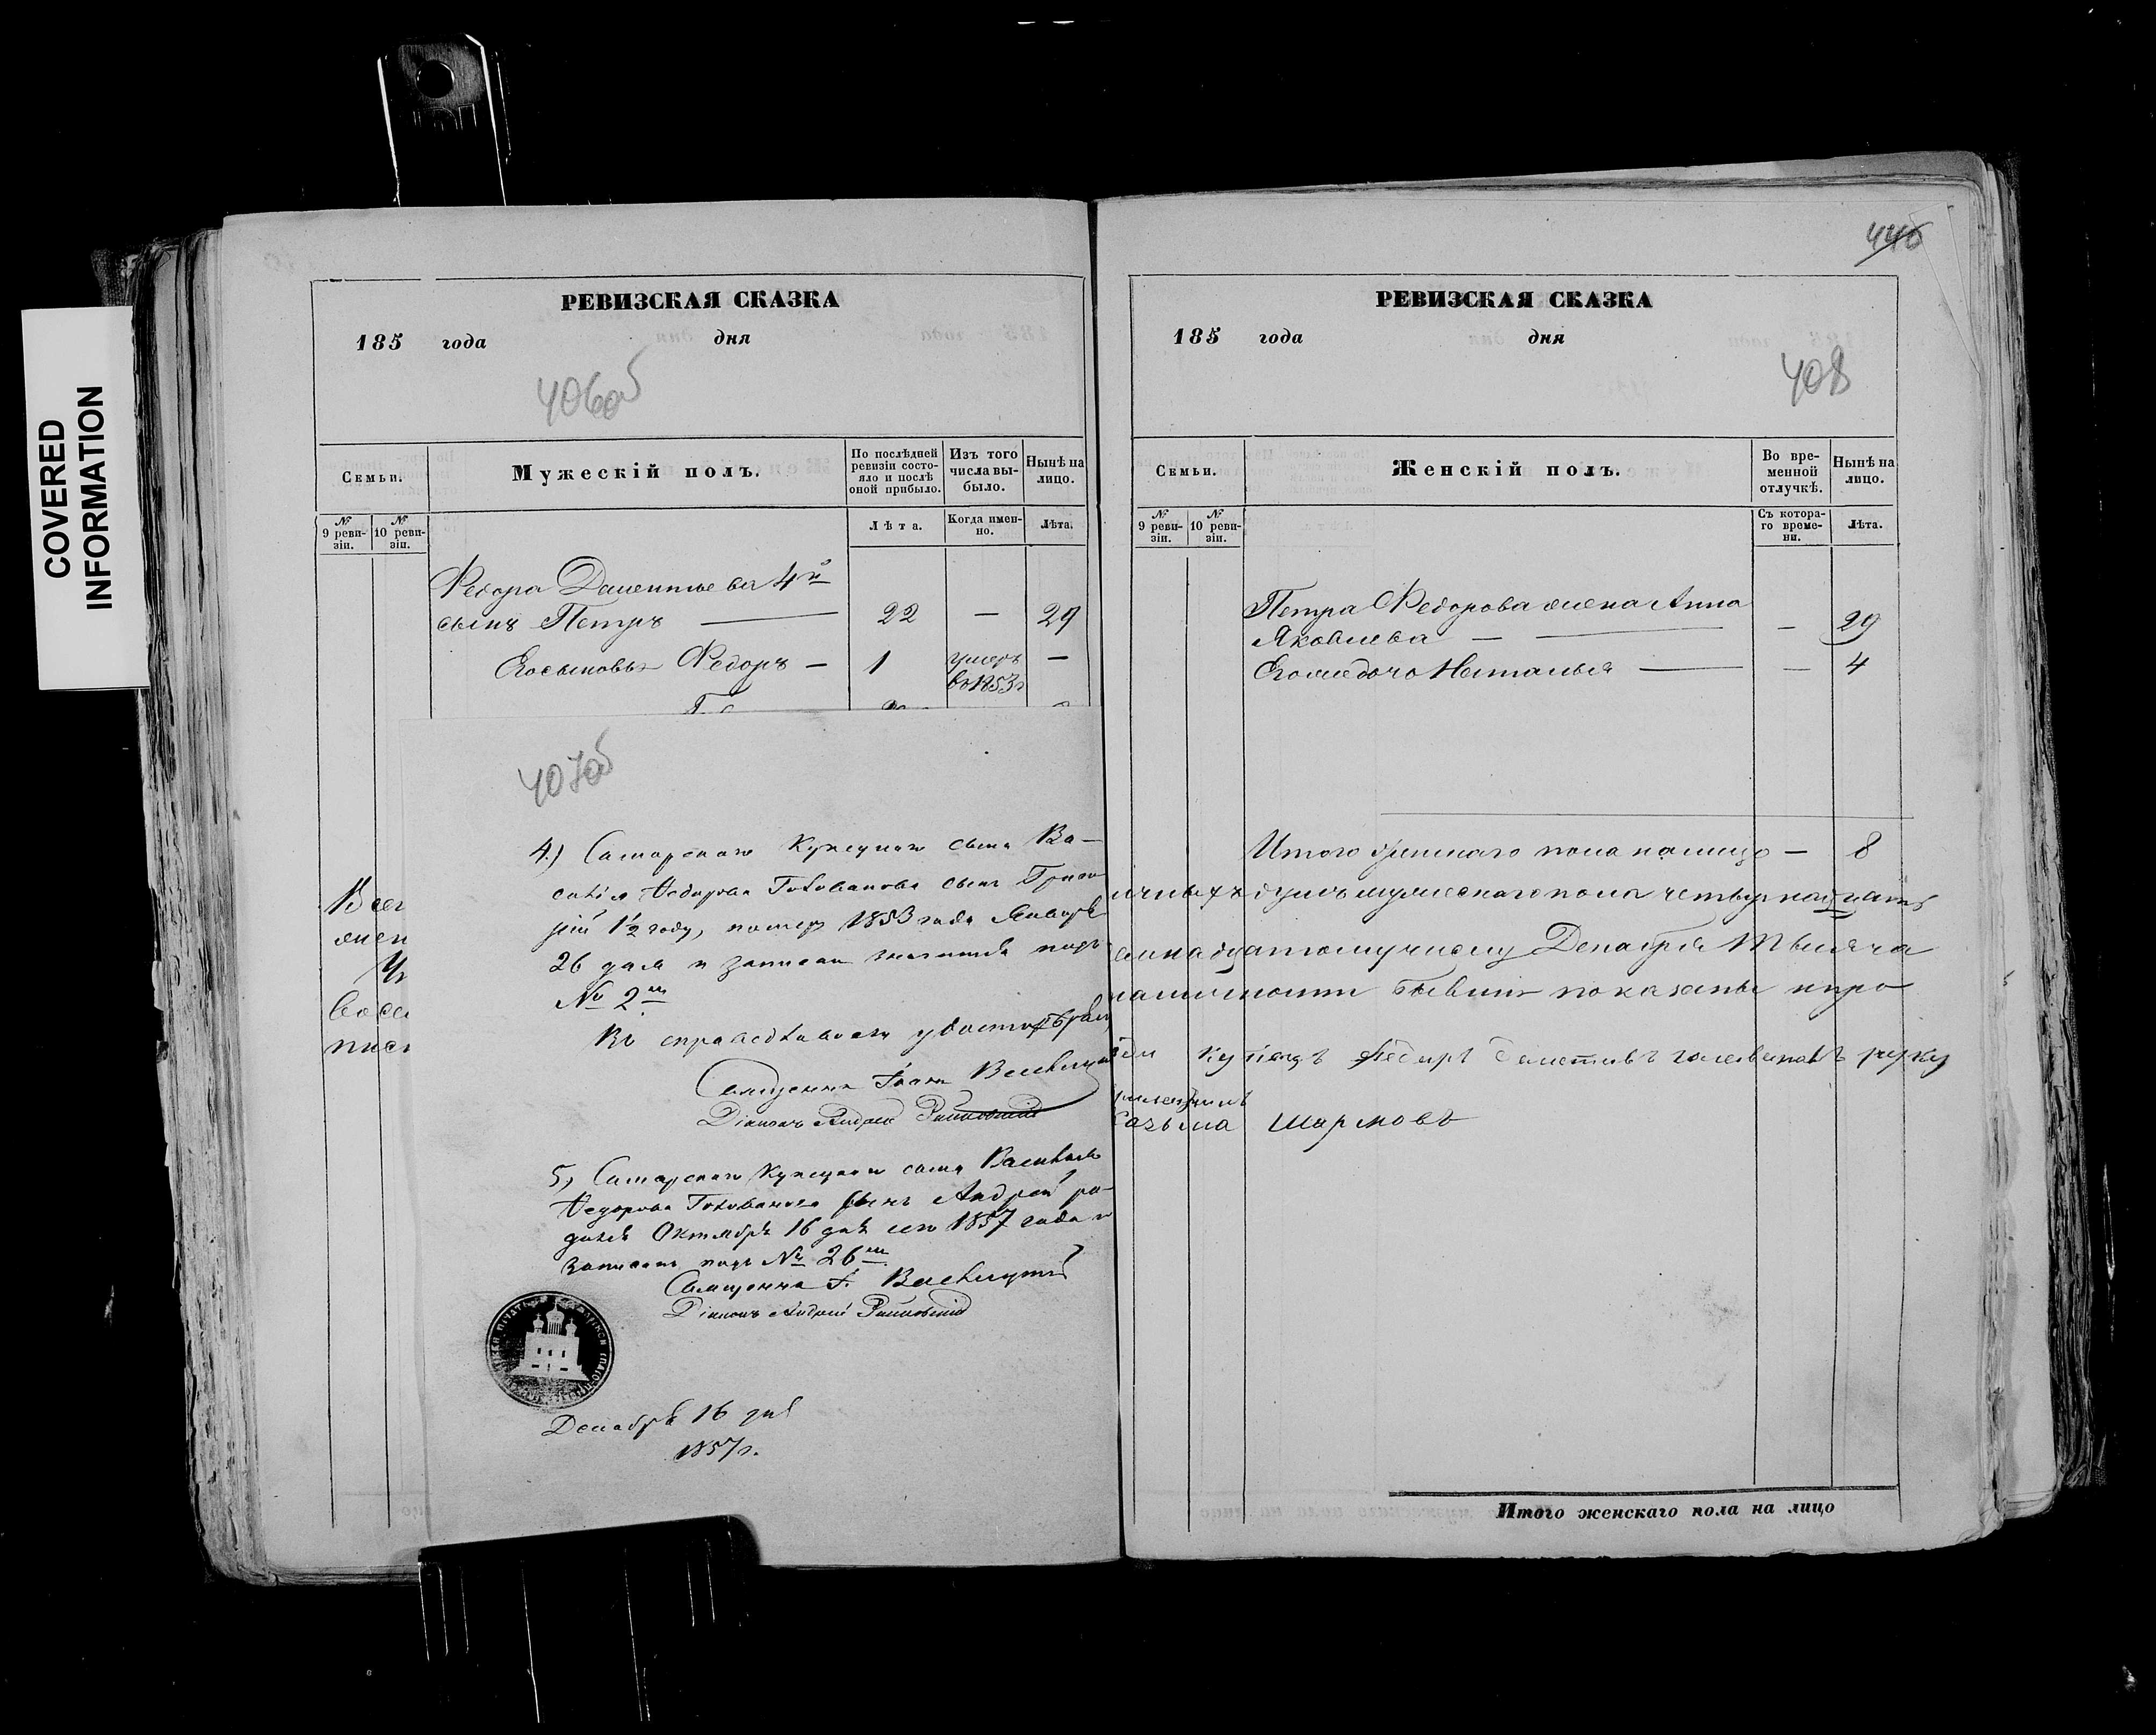 COVERED
INFORMATION
РЕВИЗСКАЯ СКАЗКА
185 года дня
406об
Семьи.
Мужескій полъ.
По послѣдней ревизіи состояло и послѣ оной прибыло.
Изъ того числа выбыло.
Нынѣ на лицо.
№ 9 ревизіи.
№ 10 ревизіи.
Лѣта.
Когда именно.
Лѣта.
Федора Дементьева 4й
сынъ Петръ — 22 — 29
Егосыновья Федоръ — 1 умеръ —
въ 1853г
407об
4.) Самарскаго Купецкаго сына Ва-
силія Ѳедорова Голованова сынъ Григо
рій 1½ году, померъ 1853 года Января
26 дня и записан подъ
№ 2м
Въ справедливости
Священникъ Іоаннъ
Діаконъ Андрей
5, Самарскаго Купецкаго сына Василья
Ѳедорова Голованова сынъ Андрей ро-
дился Октября 16 дня сего 1857 года и
записанъ подъ № 26м
Священникъ І.
Діаконъ Андрей
Декабря 16 дня
1857г.
Всег
жен
Чт
восе
пис
440
РЕВИЗСКАЯ СКАЗКА
185 года дня
408
Семьи.
Женскій полъ.
Во временной отлучкѣ.
Нынѣ на лицо.
№ 9 ревизіи.
№ 10 ревизіи.
Съ котораго времени.
Лѣта.
Петра Федорова жена Анна
Яковлева — — 29
Егожедочь Наталья — — 4
Итого женскаго пола налицо — 8
ичныхъ душъ мужескаго пола четырнадцать
надцатомучислу Декабря Тысяча
наличности бывшіе показаны и про
купецъ Федоръ Дементьевъ головановъ руку
шармовъ
Итого женскаго пола на лицо